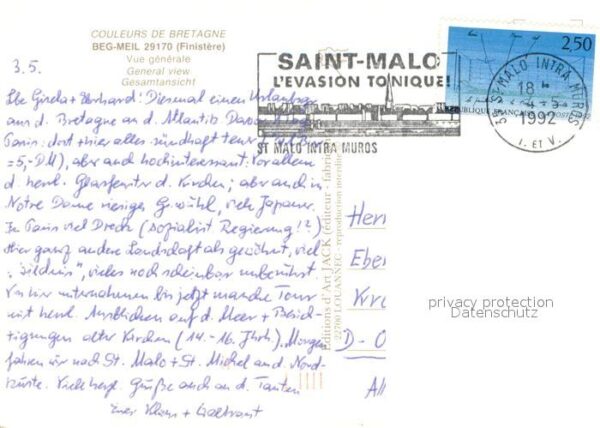 COULEURS DE BRETAGNE
BEG-MEIL 29170 (Finistère)
Vue générale
General view
Gesamtansicht
3.5.
Lbe Gerda + Eberhard! Diesmal einen Urlaubsgr
aus d. Bretagne an d. Atlantik Davor
Paris: dort + hier alles sündhaft teuer
=5,-DM), aber auch hochinteressant: Vor allem
d. herrl. Glasfenster d. Kirchen; aber auch in
Notre Dame riesiges Gewühl, viele Japaner.
In Paris viel Dreck (sozialist. Regierung!?)
Hier ganz andere Landschaft als gewohnt, viel
"wildnis", vieles noch scheinbar unberührt
Von hier unternehmen bis jetzt manche Tour
mit herrl. Ausblicken auf d. Meer + Besich-
tigungen alter Kirchen (14.-16. Jhrh). Morgen
fahren wir nach St. Malo + St. Michel an d. Nord-
küste. Viele herzl. Grüße auch an d. Tanten
Eure Klaus +
SAINT-MALO
L'EVASION TONIQUE!
ST MALO INTRA MUROS
2,50
ST MALO INTRA MUROS
18
4-5
1992
I. ET V.
Editions d'Art JACK (éditeur - fabric
22700 LOUANNEC - reproduction interdite
Herr
Eber
D-O
privacy protection
Datenschutz